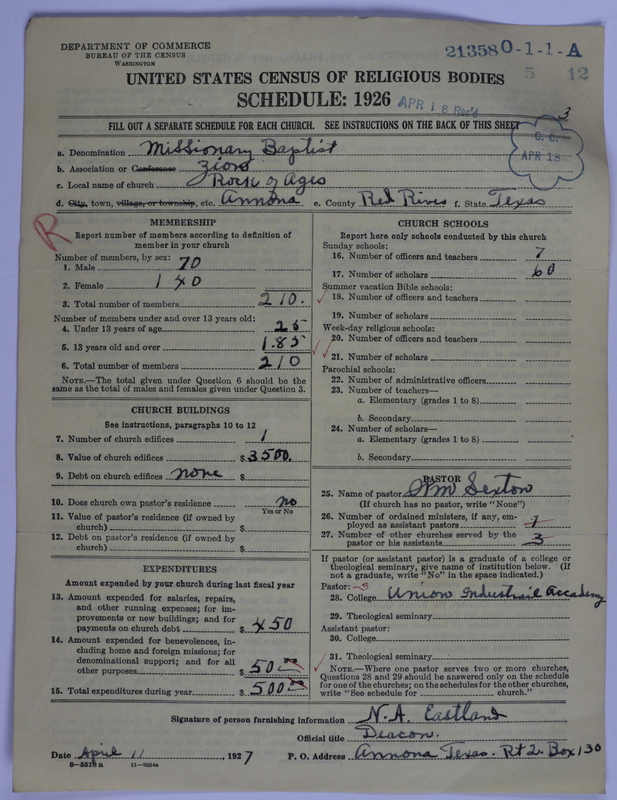 DEPARTMENT OF COMMERCE
BUREAU OF THE CENSUS
WASHINGTON
213580-1-1-A
5 12
UNITED STATES CENSUS OF RELIGIOUS BODIES
SCHEDULE: 1926
APR 18 Rec'd
3
FILL OUT A SEPARATE SCHEDULE FOR EACH CHURCH. SEE INSTRUCTIONS ON THE BACK OF THIS SHEET
C. C.
APR 18
a. Denomination Missionary Baptist
b. Association or Conference Zion
c. Local name of church Rock of Ages
d. City, town, village, or township, etc. Annona e. County Red River f. State Texas
R
MEMBERSHIP
Report number of members according to definition of
member in your church
Number of members, by sex:
1. Male 70
2. Female 140
3. Total number of members 210.
Number of members under and over 13 years old:
4. Under 13 years of age 25
5. 13 years old and over 1.85
6. Total number of members 210
NOTE.—The total given under Question 6 should be the
same as the total of males and females given under Question 3.
CHURCH BUILDINGS
See instructions, paragraphs 10 to 12
7. Number of church edifices 1
8. Value of church edifices $ 3500.
9. Debt on church edifices none $
10. Does church own pastor's residence no
Yes or No
11. Value of pastor's residence (if owned by
church) $
12. Debt on pastor's residence (if owned by
church) $
EXPENDITURES
Amount expended by your church during last fiscal year
13. Amount expended for salaries, repairs,
and other running expenses; for im-
provements or new buildings; and for
payments on church debt $ 450
14. Amount expended for benevolences, in-
cluding home and foreign missions; for
denominational support; and for all
other purposes $ 50 00
15. Total expenditures during year $ 500 00
CHURCH SCHOOLS
Report here only schools conducted by this church
Sunday schools:
16. Number of officers and teachers 7
17. Number of scholars 60
Summer vacation Bible schools:
18. Number of officers and teachers
19. Number of scholars
Week-day religious schools:
20. Number of officers and teachers
21. Number of scholars
Parochial schools:
22. Number of administrative officers
23. Number of teachers—
a. Elementary (grades 1 to 8)
b. Secondary
24. Number of scholars—
a. Elementary (grades 1 to 8)
b. Secondary
PASTOR
25. Name of pastor Wm Sexton
(If church has no pastor, write "None")
26. Number of ordained ministers, if any, em-
ployed as assistant pastors 1
27. Number of other churches served by the
pastor or his assistants 3
If pastor (or assistant pastor) is a graduate of a college or
theological seminary, give name of institution below. (If
not a graduate, write "No" in the space indicated.)
Pastor: -3
28. College Union Industrail Accademy
29. Theological seminary
Assistant pastor:
30. College
31. Theological seminary
NOTE.—Where one pastor serves two or more churches,
Questions 28 and 29 should be answered only on the schedule
for one of the churches; on the schedules for the other churches,
write "See schedule for church."
Signature of person furnishing information N. A. Eastland
Official title Deacon.
Date April 11, 1927 P. O. Address Annona Texas. Rt 2. Box 130
8—5518 a 11—9024a